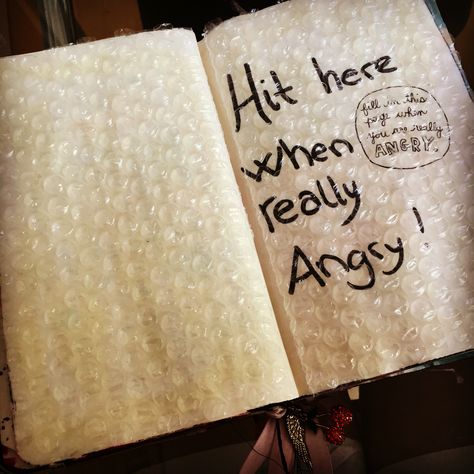 Hit here
when
really
Angry!
fill in this
page when
you are really
ANGRY.